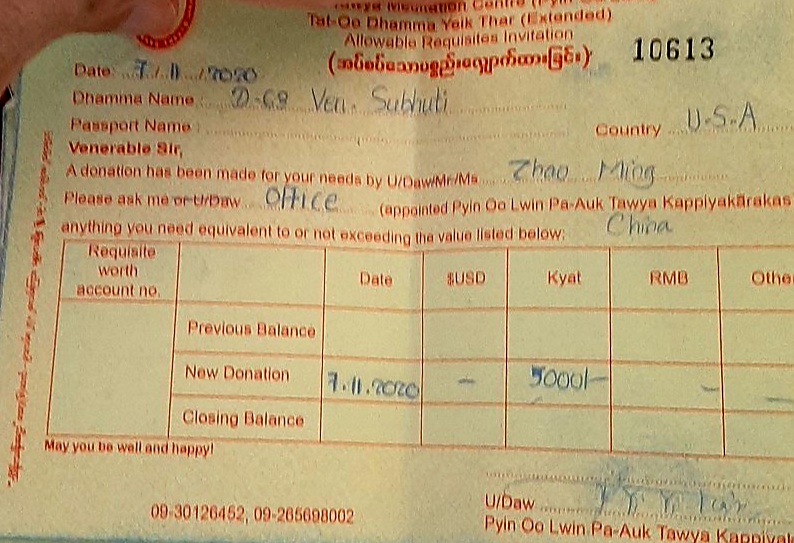 Tawya Meditation Centre (Pyin
Tat-Oo Dhamma Yeik Thar (Extended)
Allowable Requisites Invitation
10613
(အပ်စပ်သောပစ္စည်းလျှောက်ထားခြင်း)
Date: 7/11/2020
Dhamma Name: D-68 Ven. Subhuti
Passport Name:
Country U.S.A
Venerable Sir,
A donation has been made for your needs by U/Daw/Mr/Ms Zhao Ming
Please ask me or U/Daw Office (appointed Pyin Oo Lwin Pa-Auk Tawya Kappiyakārakas
China
anything you need equivalent to or not exceeding the value listed below:
Requisite worth account no. Date $USD Kyat RMB Othe
Previous Balance
New Donation 7.11.2020 - 5000/- - -
Closing Balance
May you be well and happy!
09-30126452, 09-265698002
U/Daw
Pyin Oo Lwin Pa-Auk Tawya Kappiyak